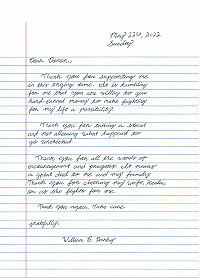 May 22nd, 2022
Sunday
Dear Donor,
Thank you for supporting me
in this trying time. It is humbling
for me that you are willing to give
hard-earned money to make fighting
for my life a possibility.
Thank you for taking a stand
and not allowing what happened to
go unchecked.
Thank you for all the words of
encouragement and prayers. It means
a great deal to me and my family.
Thank you for cheering my wife,
on as she fights for me.
Thank you again. Take care
gratefully,
William B.